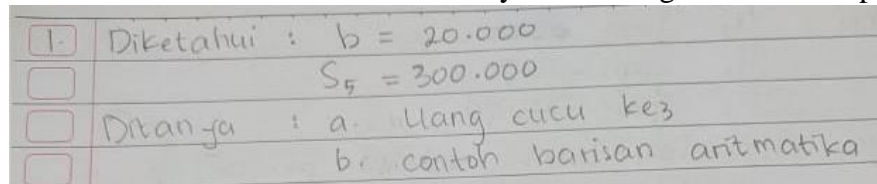 1. Diketahui : b = 20.000
S5 = 300.000
Ditanya : a. Uang cucu ke3
b. contoh barisan aritmatika